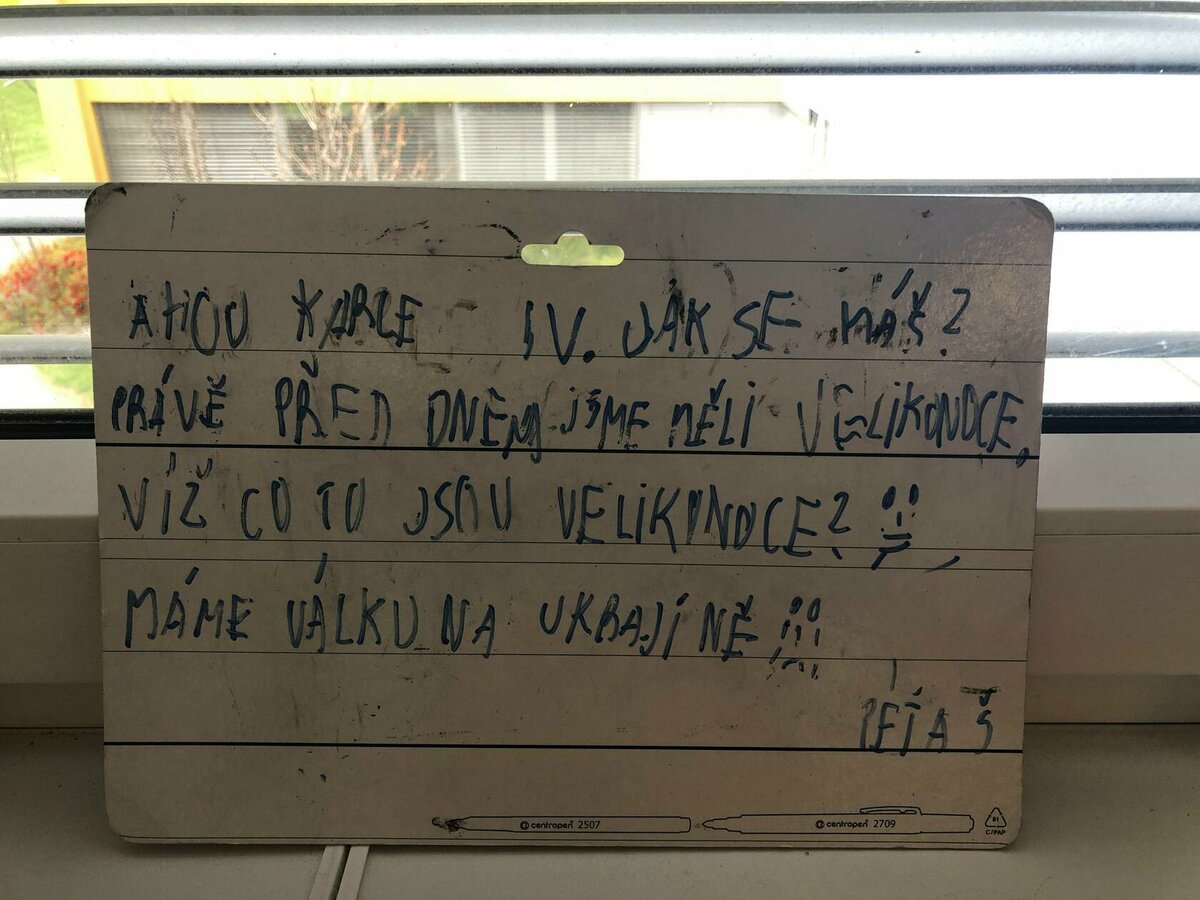 AHOJ KARLE IV. JAK SE MÁŠ?
PRÁVĚ PŘED DNĚM JSME MĚLI VELIKONOCE,
VÍŽ CO TO JSOU VELIKONOCE?
MÁME VÁLKU NA UKRAJÍNĚ
PÉŤA Š
centropen 2507
centropen 2709
81
C/PAP